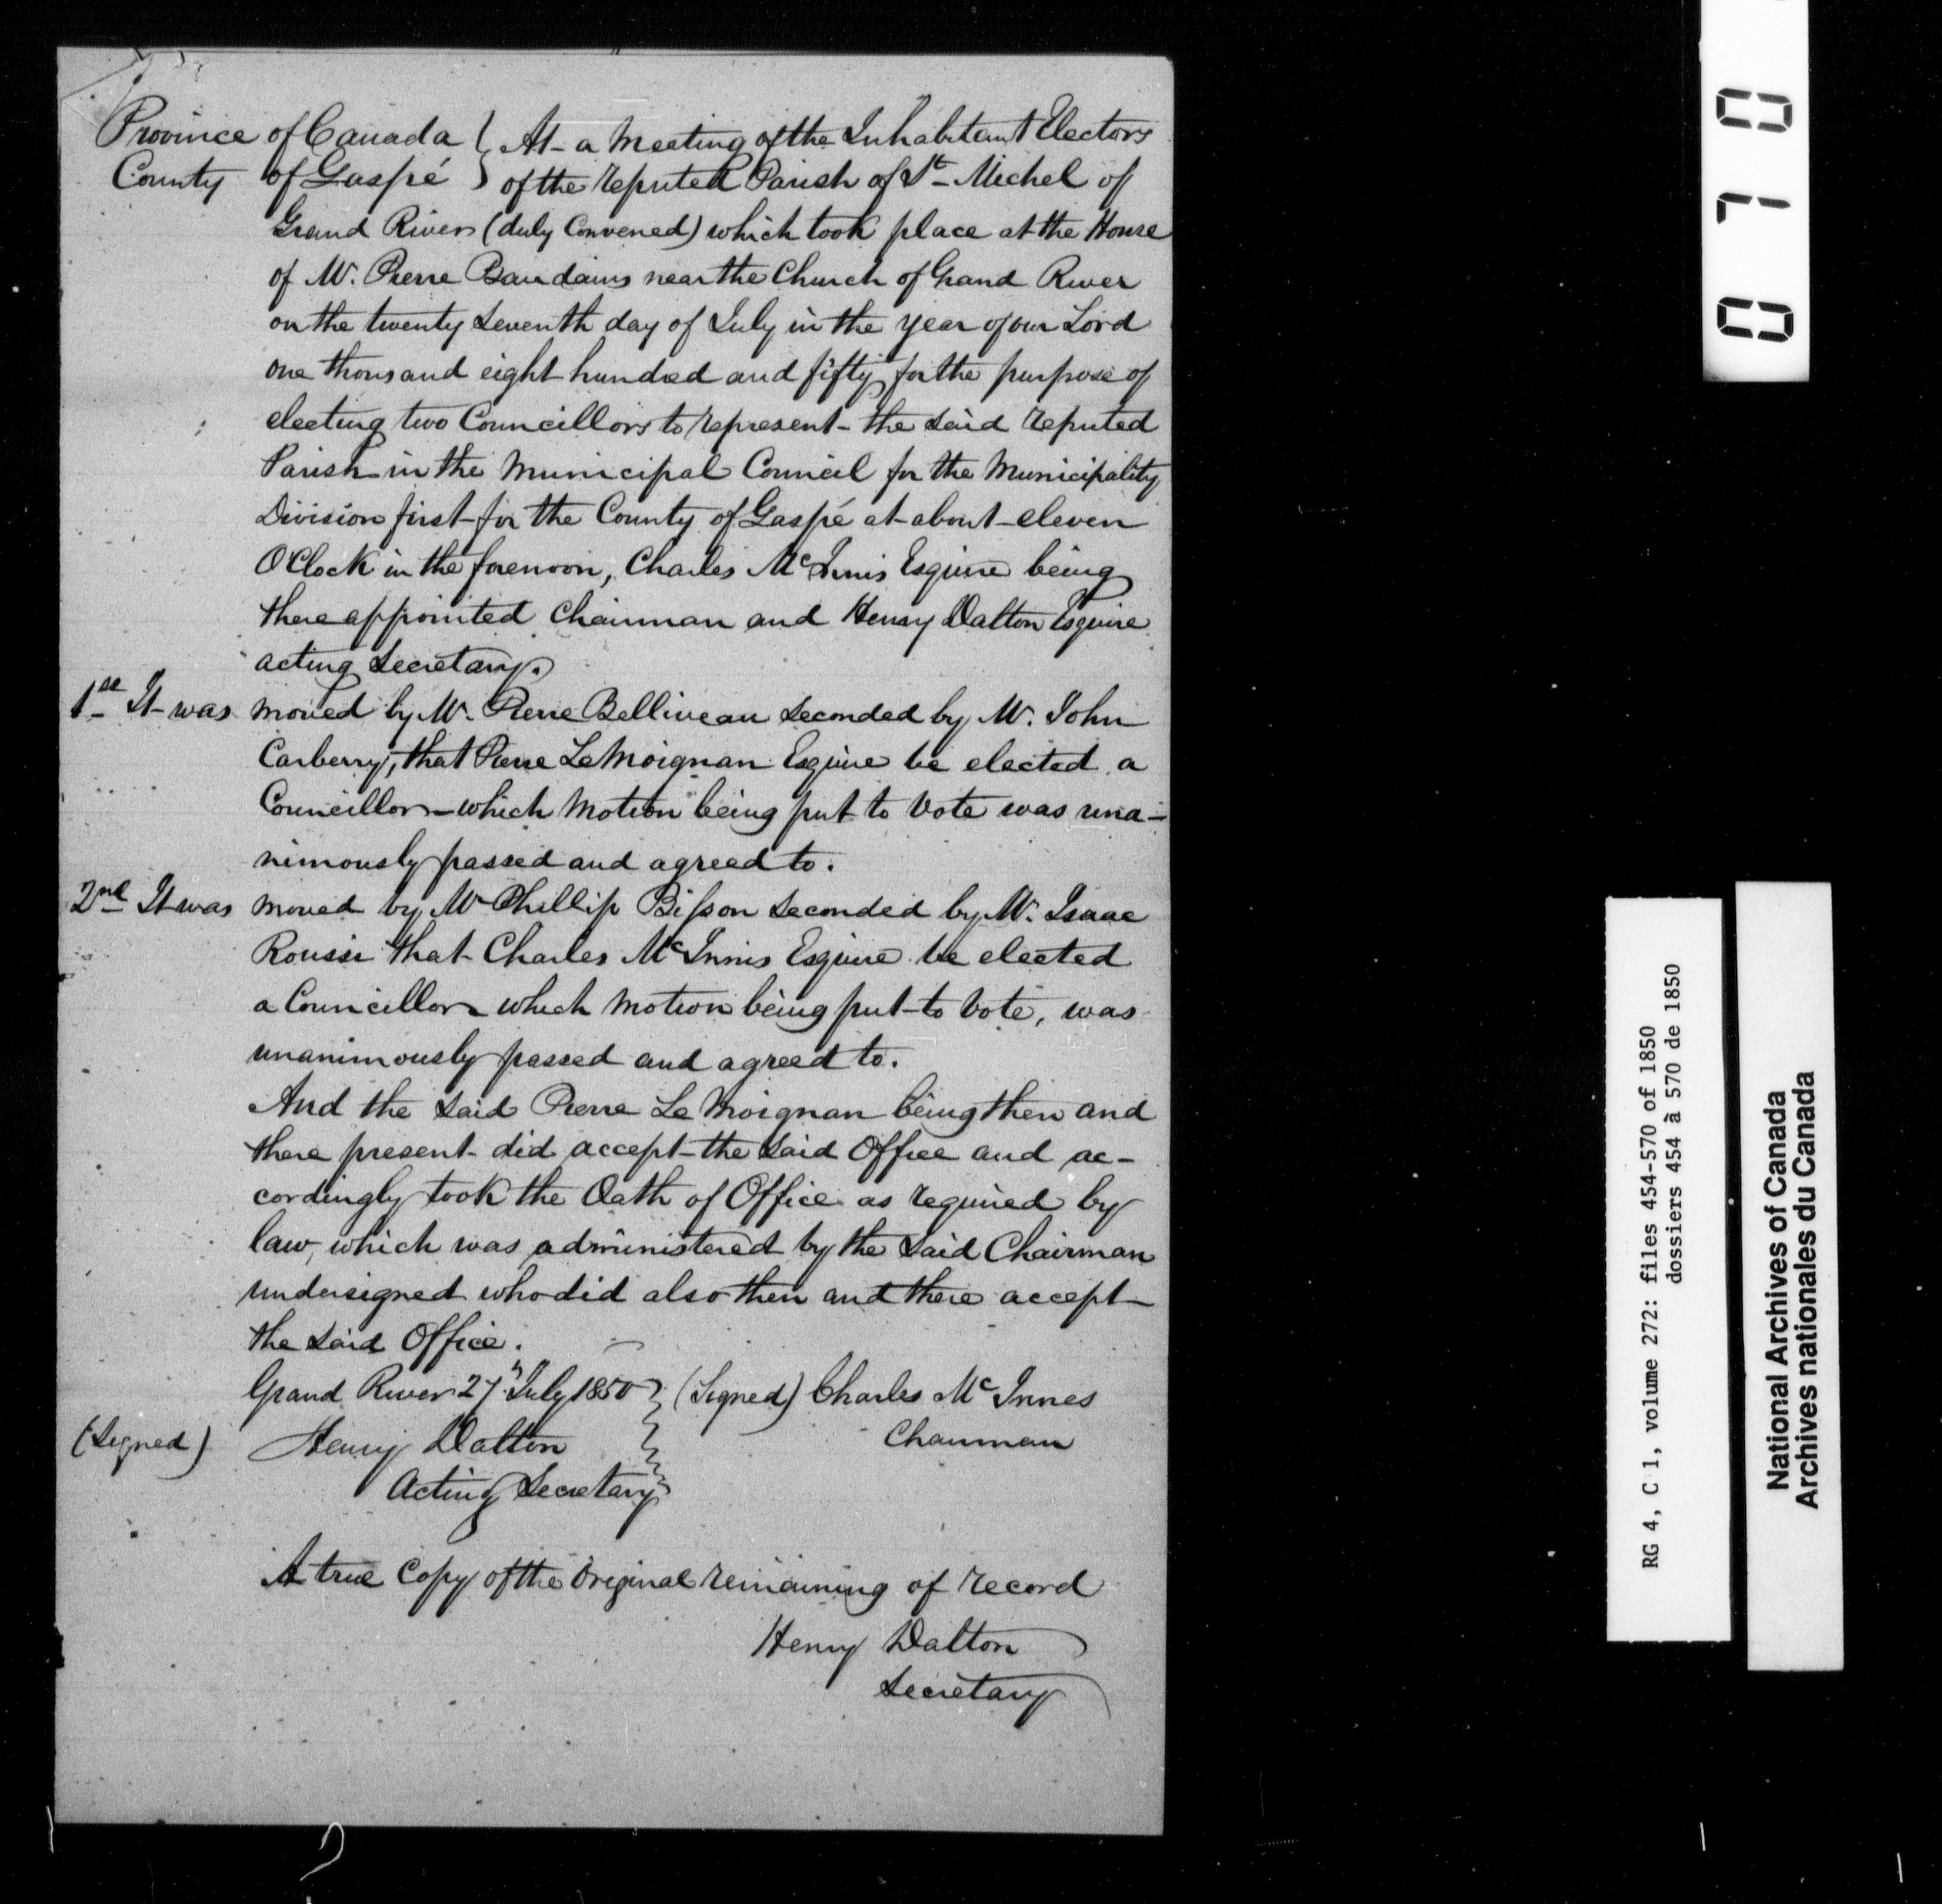 Province of Canada } At a Meeting of the Inhabitant Electors
County of Gaspé } of the reputed Parish of St Michel of
Grand River (duly Convened) which took place at the House
of Mr. Pierre Baudains near the Church of Grand River
on the twenty seventh day of July in the year of our Lord
one thousand eight hundred and fifty for the purpose of
electing two Councillors to represent the said reputed
Parish in the Municipal Council for the Municipality
Division first for the County of Gaspé at about eleven
O'Clock in the forenoon, Charles McInnis Esquire being
there appointed Chairman and Henry Dalton Esquire
acting Secretary.
1st It was moved by Mr. Pierre Belliveau seconded by Mr. John
Carberry, that Pierre LeMoignan Esquire be elected a
Councillor which Motion being put to Vote was una-
nimously passed and agreed to.
2nd It was moved by Mr Phillip Bisson seconded by Mr. Isaac
Roussi that Charles McInnis Esquire be elected
a Councillor which Motion being put to Vote, was
unanimously passed and agreed to.
And the said Pierre Le Moignan being then and
there present did accept the said Office and ac-
cordingly took the Oath of Office as required by
law, which was administered by the said Chairman
undersigned who did also then and there accept
the said Office.
Grand River 27" July 1850 } (Signed) Charles McInnes
(Signed) Henry Dalton } Chairman
Acting Secretary
A true Copy of the Original remaining of record
Henry Dalton
Secretary
0710
RG 4, C 1, volume 272: files 454-570 of 1850
dossiers 454 à 570 de 1850
National Archives of Canada
Archives nationales du Canada